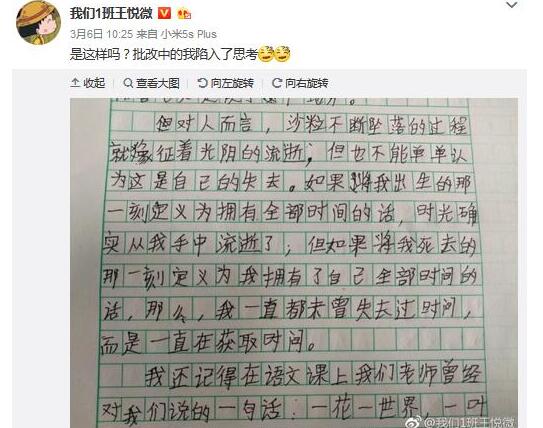 我们1班王悦微
3月6日 10:25 来自 小米5s Plus
是这样吗？批改中的我陷入了思考
收起 查看大图 向左旋转 向右旋转
但对人而言，沙粒不断坠落的过程
就像征着光阴的流逝；但也不能单单认
为这是自己的失去。如果将我出生的那
一刻定义为拥有全部时间的话，时光确
实从我手中流逝了；但如果将我死去的
那一刻定义为我拥有了自己全部时间的
话，那么，我一直都未曾失去过时间，
而是一直在获取时间。
我还记得在语文课上我们老师曾经
对我们说的一句话：一花一世界，一叶
@我们1班王悦微